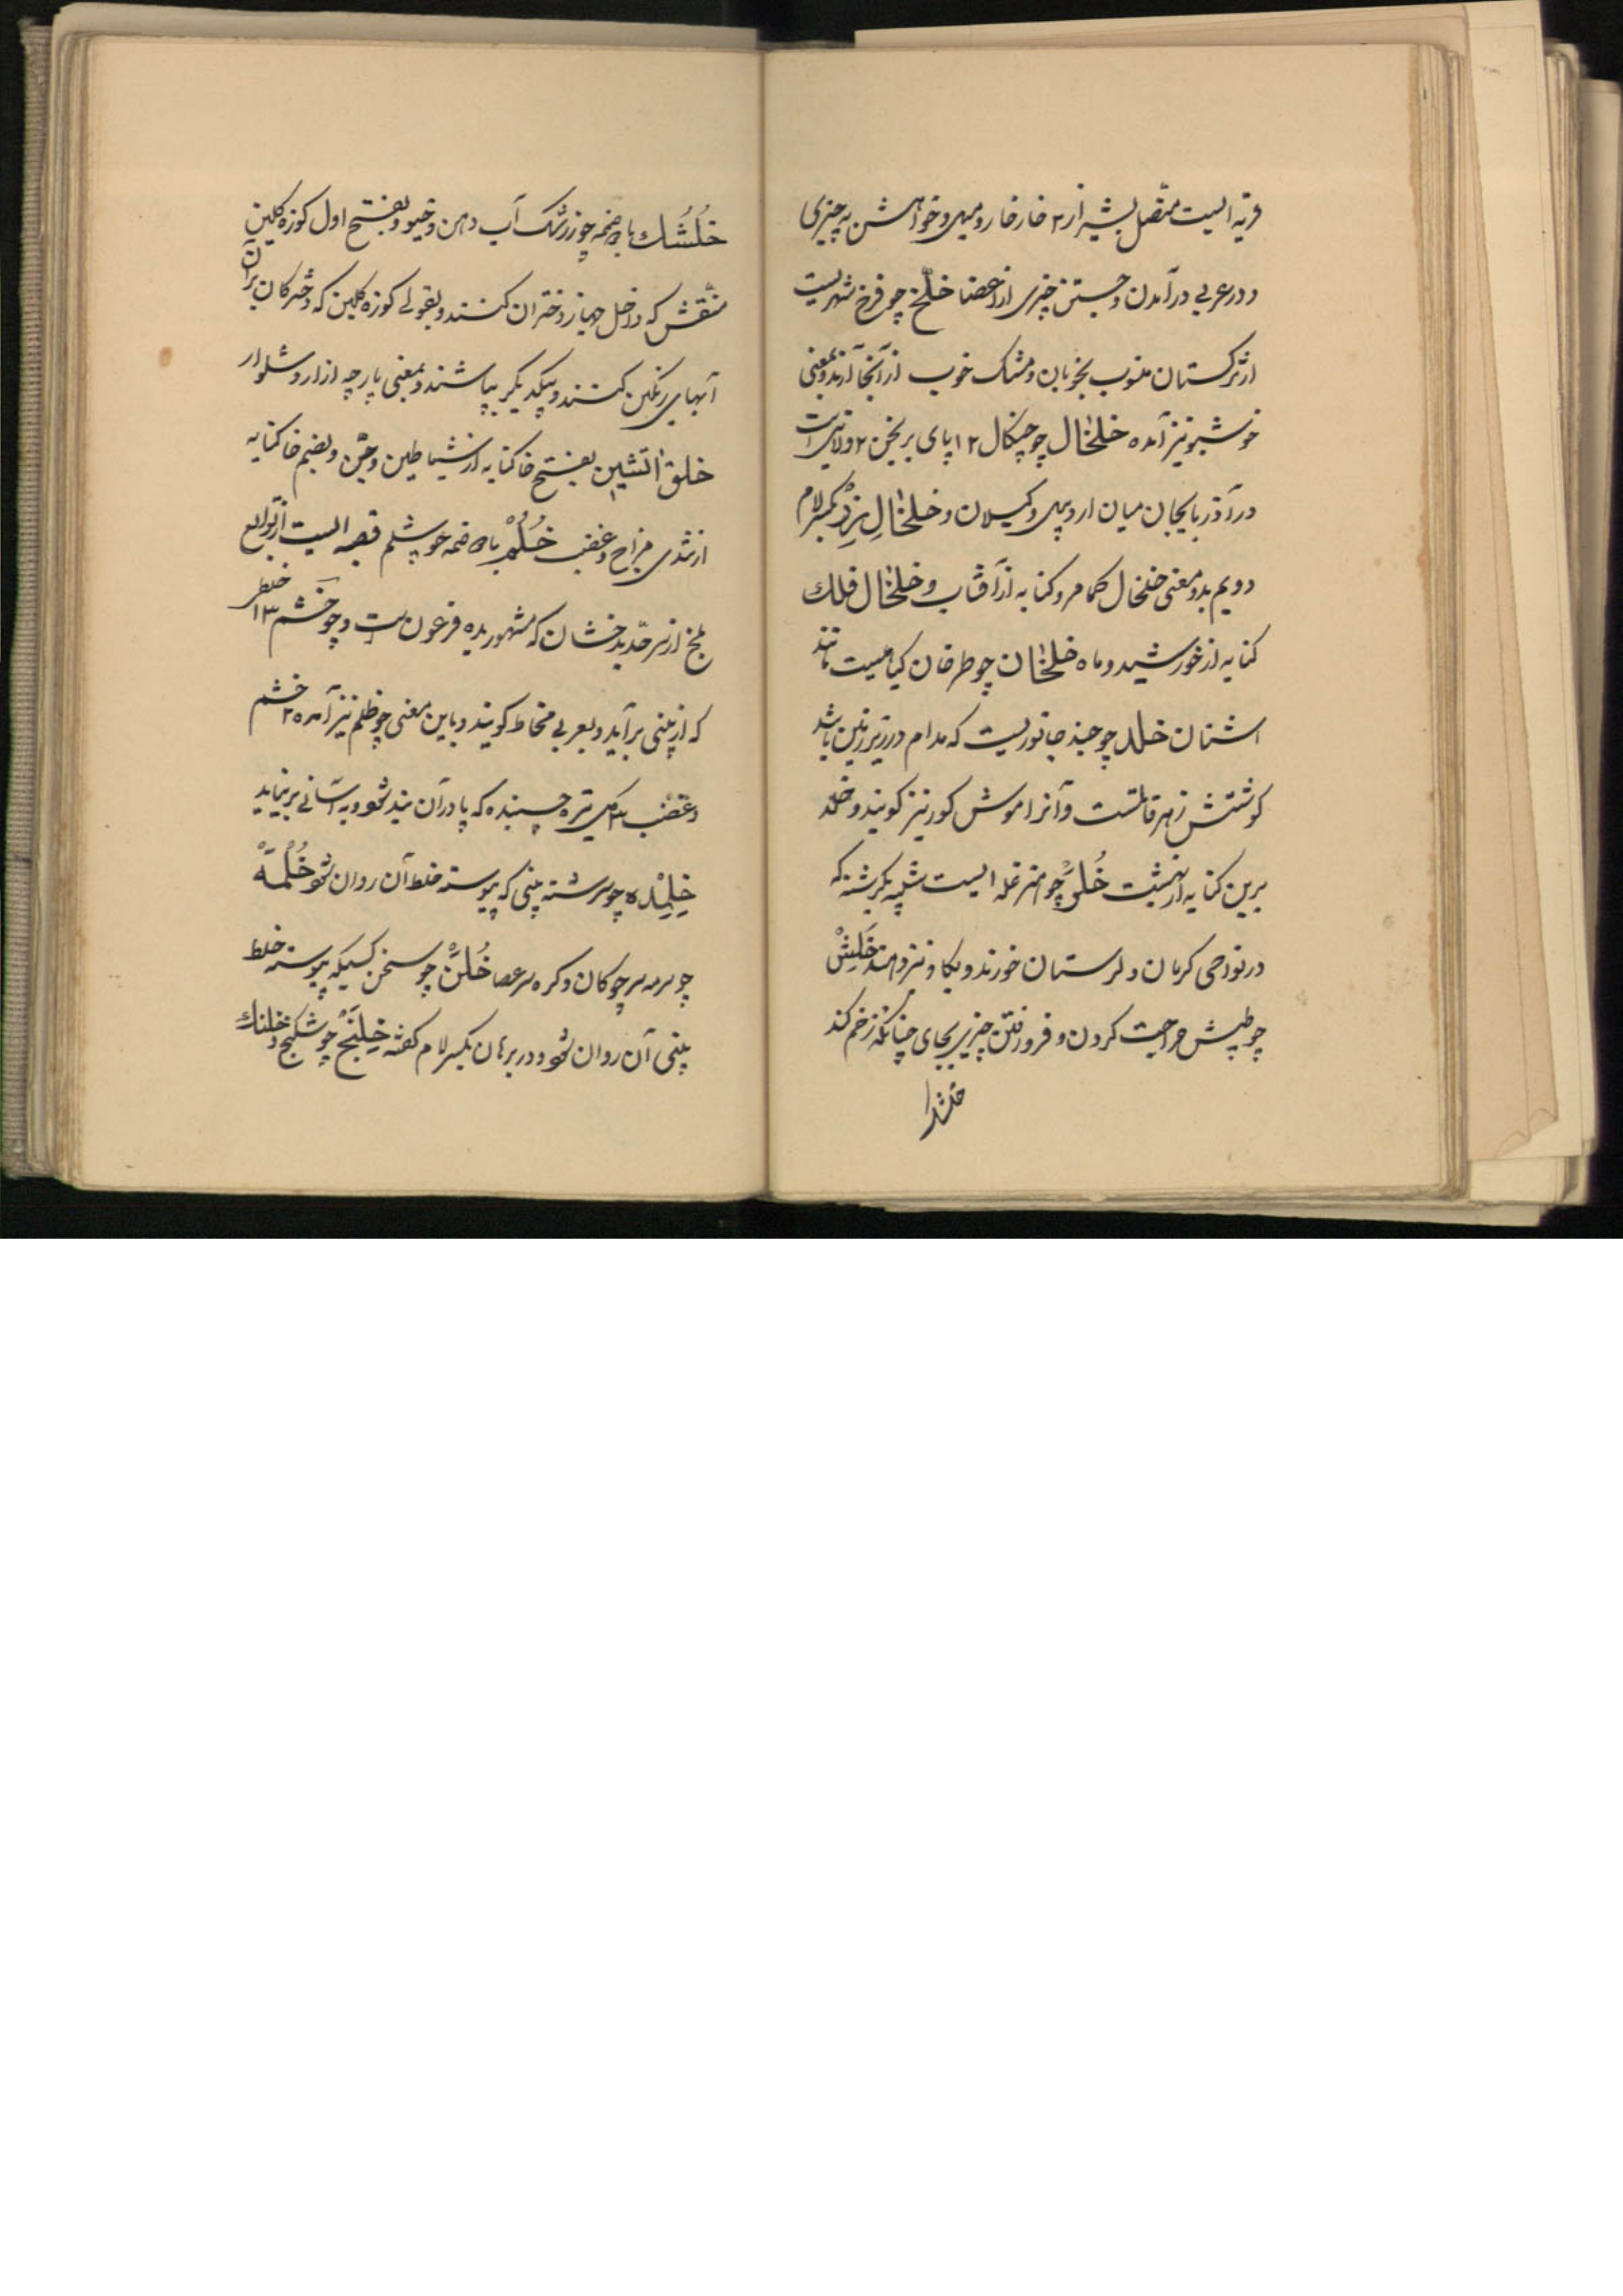 قریه ایست متصل بشیراز ۳ خارخار و میل و خواهش به چیزی
و در عربی درآمدن و جستن چیزی از اعضا خلّخ چو فرخ شهریست
از ترکستان منسوب بخوبان و مشک خوب از آنجا آرند و بمعنی
خوشبو نیز آمده خلخال چو چنگال ۱۲ پای برنجن ۲ ولایتی است
در آذربایجان میان اردبیل و گیلان و خلخال زر بکسر لام
دویم بدو معنی خلخال کمامر و کنایه از آفتاب و خلخال فلک
کنایه از خورشید و ماه خلخان چو طرخان گیاهیست مانند
اشنان خلد چو جند جانوریست که مدام در زیر زمین باشد
گوشتش زهر قاتلست و آنرا موش کور نیز گویند و خلد
برین کنایه از بهشت خُلَّر چو غله ایست شبیه بکرشنه که
در نواحی کرمان و لرستان خورند و بگاو نیز دهند خَلِش
چو طپش جراحیت کردن و فرو رفتن چیزی بجای چنانکه زخم کند
خلشک
خُلُشُک با ضمه چو زرشک آب دهن و خیو و بفتح اول کوزه گلین
منقش که داخل جهاز دختران کنند و بقولی کوزه گلین که دخترکان بر آن
آبهای رنگین کنند و بیکدیگر بپاشند و بمعنی پارچه ازار و شلوار
خلق آتشین بفتح خا کنایه از شیاطین و جن و بضم خا کنایه
از تندی مزاج و غضب خُلُم با ضمه چو شلم قصبه ایست از توابع
بلخ از سرحد بدخشان که مشهور بده فرعون ست و چو خشم ۱۳ خلط
که از بینی برآید و بعربی مخاط گویند و باین معنی چو ظلم نیز آمده ۲ خشم
و غضب ۳ گل تیره چسبنده که پا در آن بند شود و به آسانی برنیاید
خِلِیده چو سرشته بینی که پیوسته خلط آن روان شود خُلْمَه
چو سرمه سر چوگان و گره سر عصا خُلَن چو سخن کسیکه پیوسته خلط
بینی آن روان شود و در برهان بکسر لام گفته خِلَنج چو شکنج و خلنک